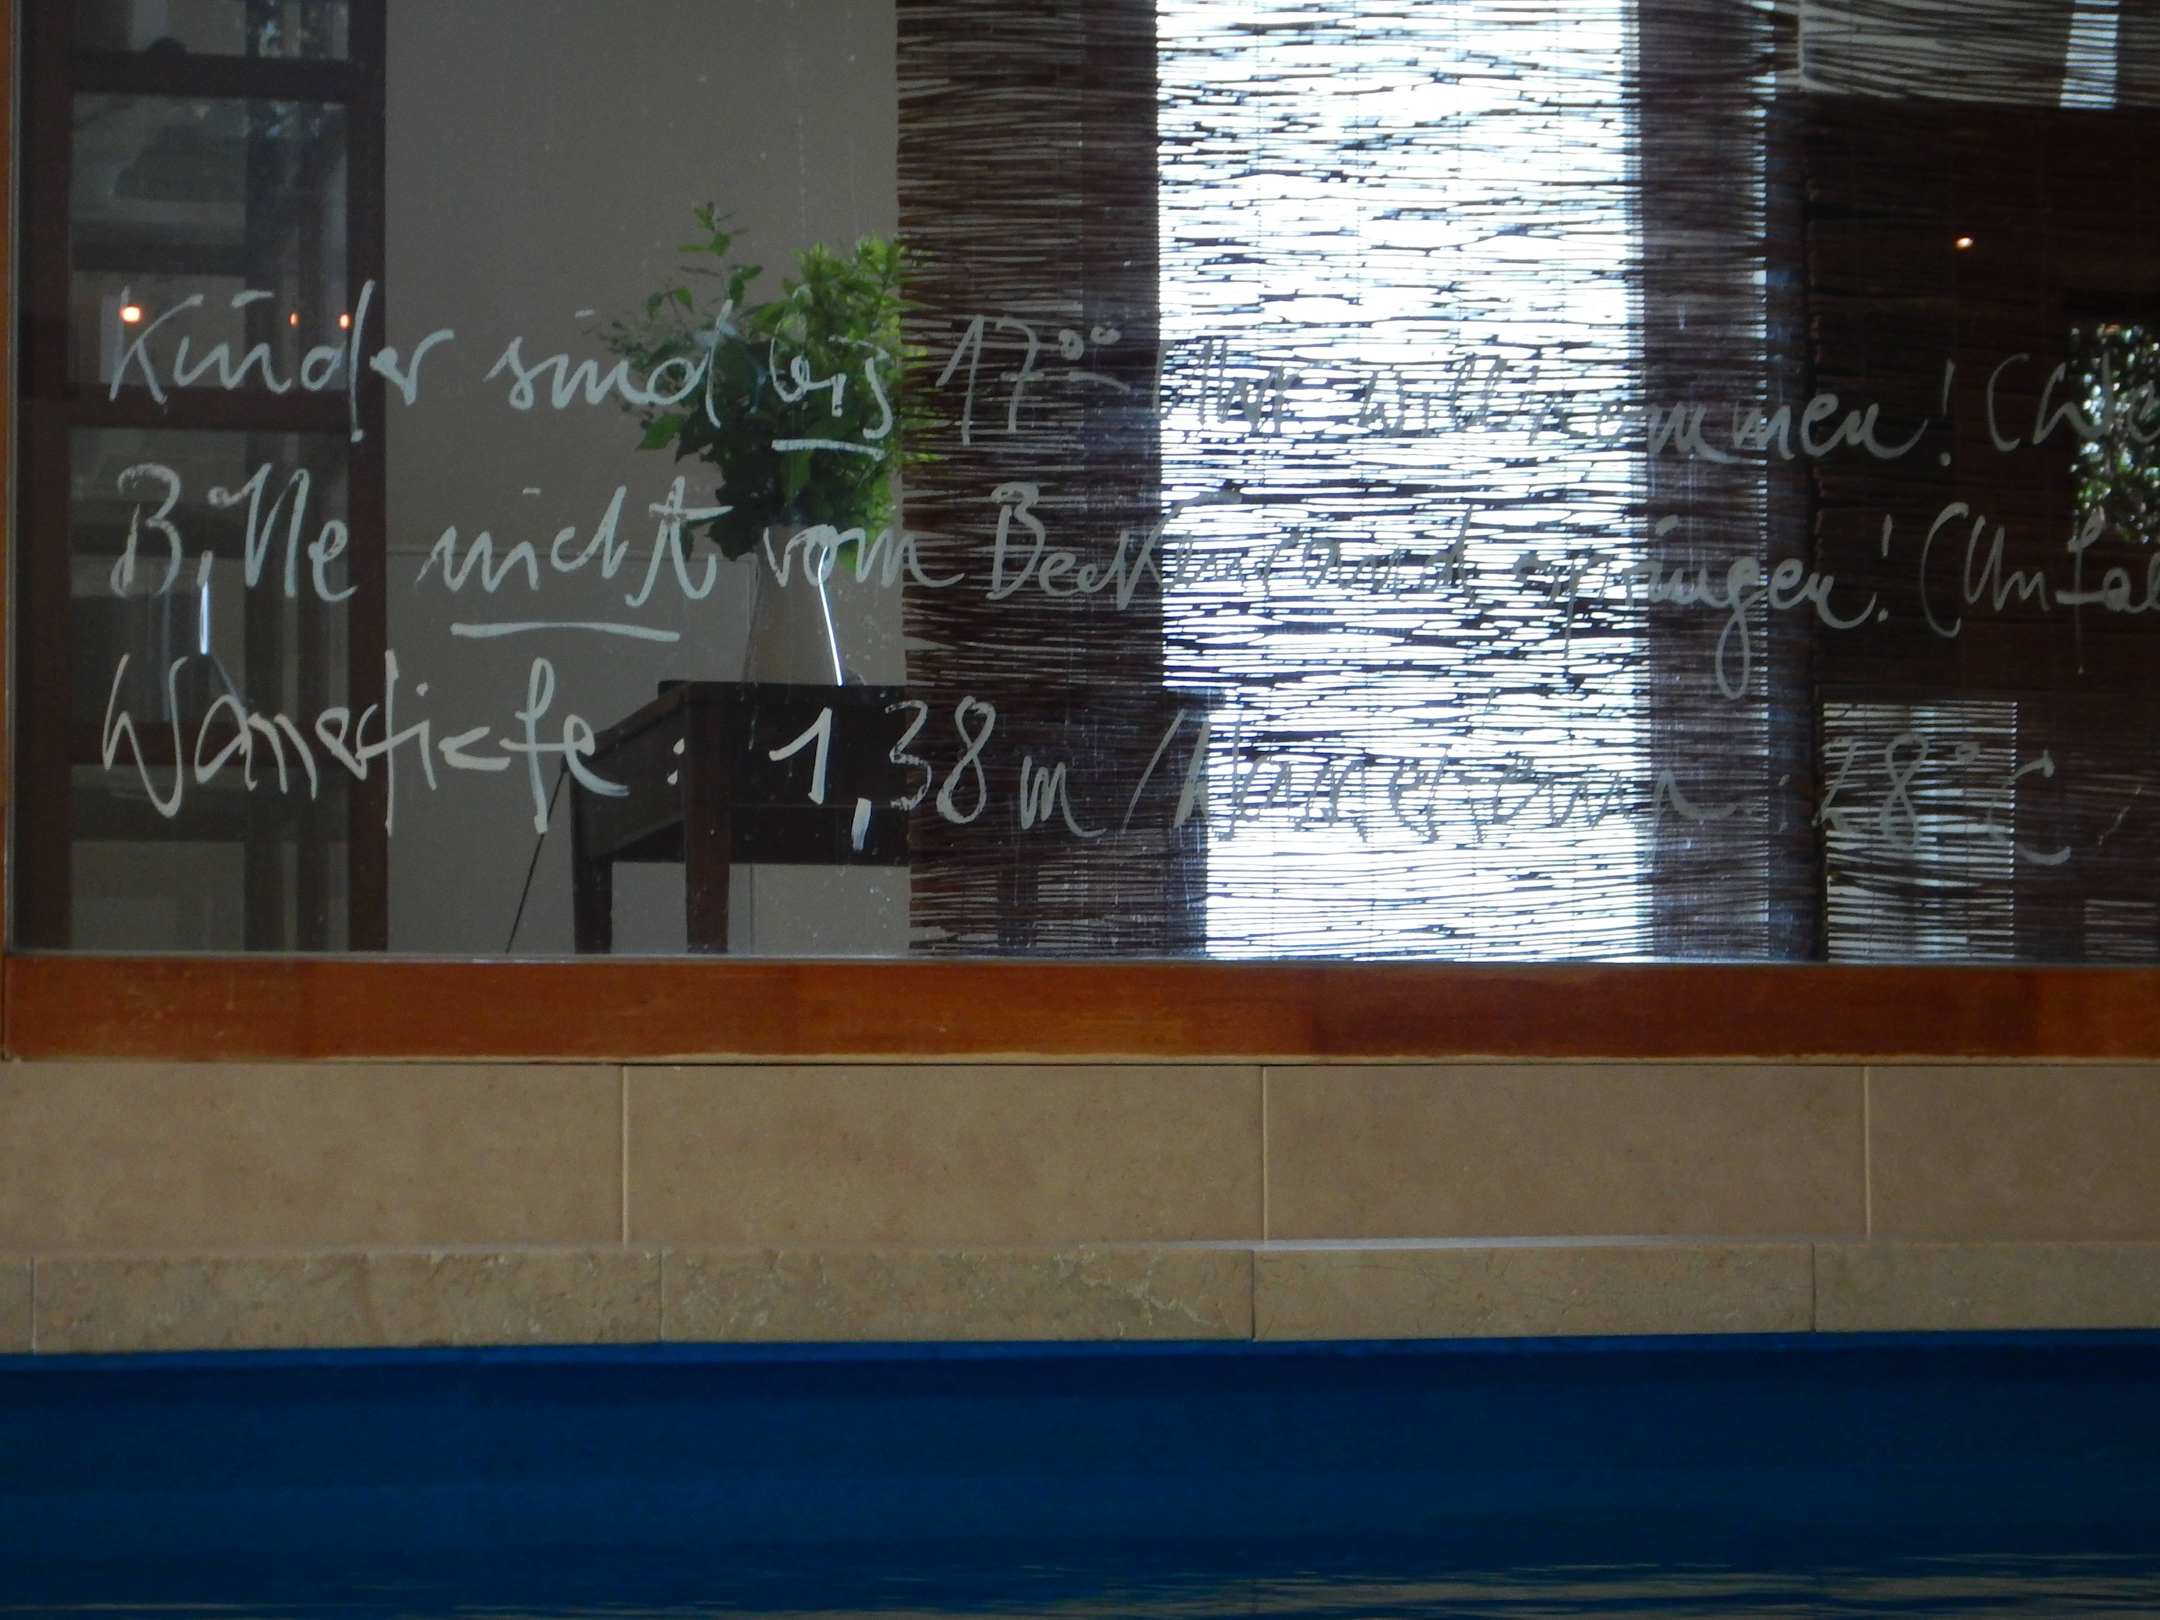 Kinder sind bis 17⁰⁰ Uhr willkommen! (
Bitte nicht vom Beckenrand springen! (Unfal
Wassertiefe: 1,38 m / Wassertemp.: 28°C